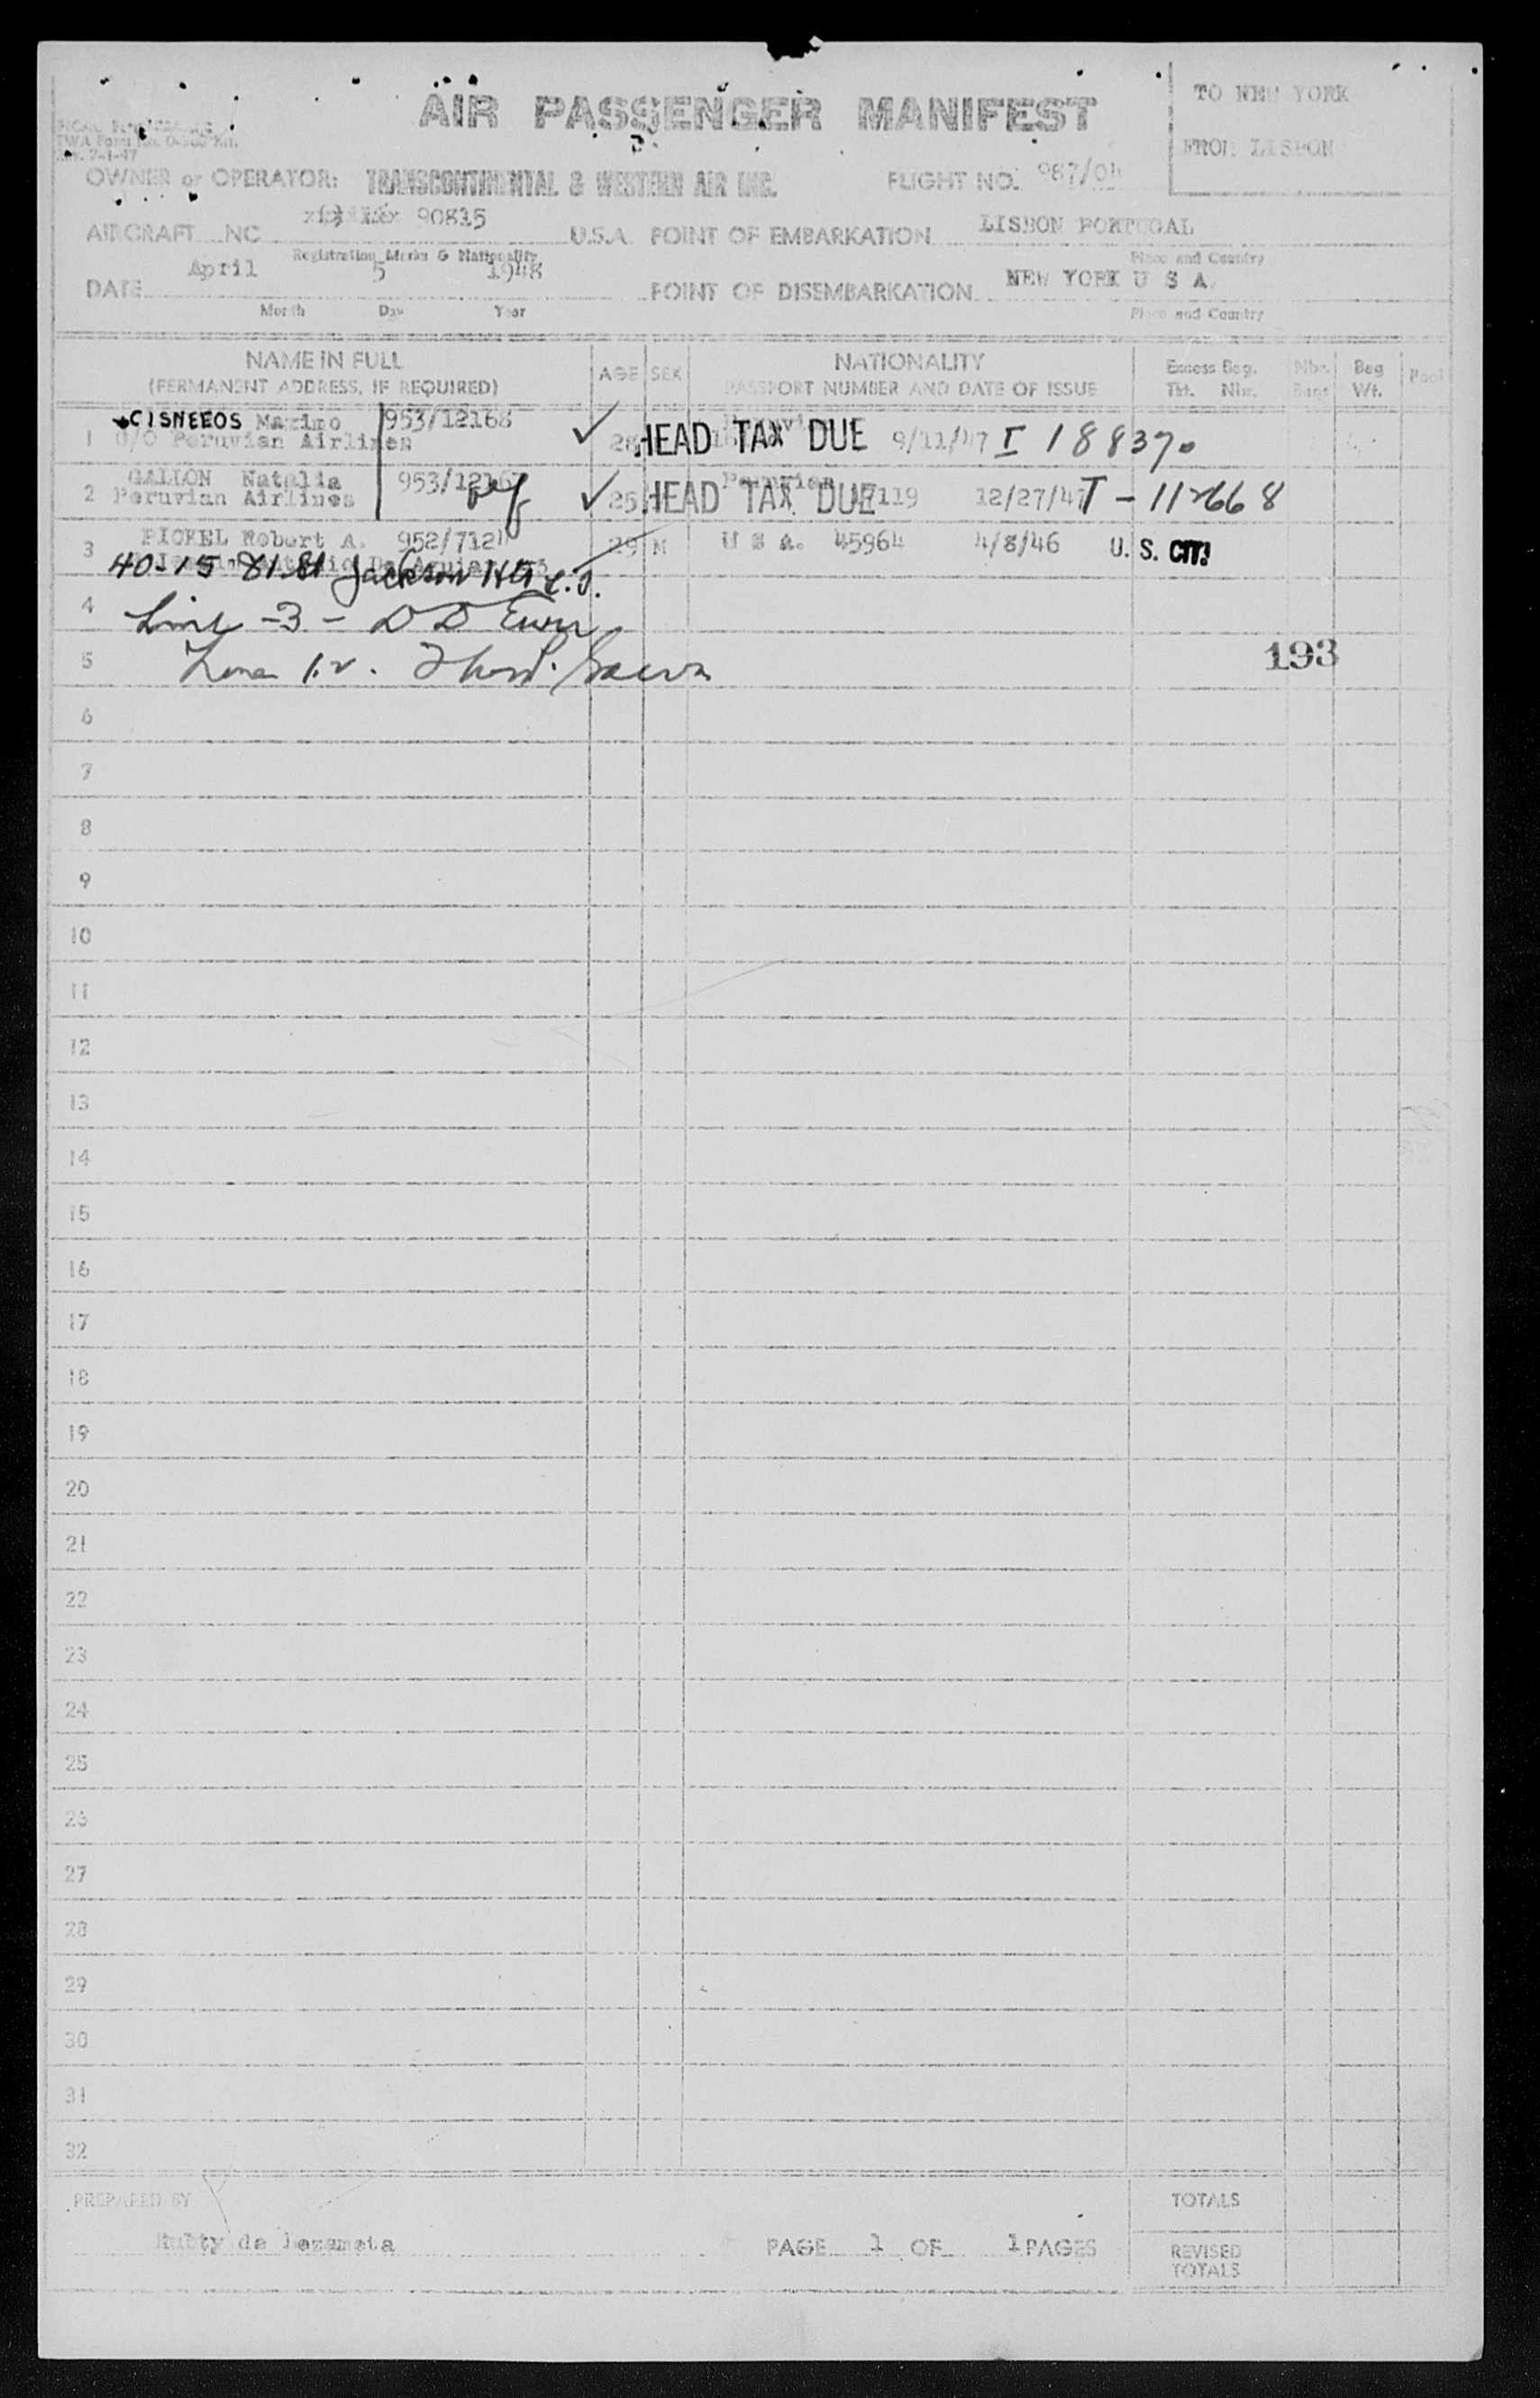 AIR PASSENGER MANIFEST
TO NEW YORK
FROM LISBON
TWA Form No.
7-1-47
OWNER or OPERATOR: TRANSCONTINENTAL & WESTERN AIR INC.
FLIGHT NO. 987/04
AIRCRAFT NC 90815 U.S.A.
Registration Marks & Nationality
POINT OF EMBARKATION LISBON PORTUGAL
Place and Country
DATE April 5 1948
Month Day Year
POINT OF DISEMBARKATION NEW YORK U S A
Place and Country
NAME IN FULL AGE SEX NATIONALITY Excess Bag. Nbr. Bag
(PERMANENT ADDRESS, IF REQUIRED) PASSPORT NUMBER AND DATE OF ISSUE Tkt. Nbr. Bags Wt.
1 CISNEEOS Maximo 953/12168 ✓ HEAD TAX DUE 9/11/47 I 188370
C/O Peruvian Airlines
2 GALLON Natalia 953/1216 ✓ 25 HEAD TAX DUE 119 12/27/47 I - 112668
Peruvian Airlines
3 PICKEL Robert A. 952/7124 29 M U S A. 45964 4/8/46 U. S. CIT.
40-15 81 St Jackson Hts L.I.
4 Line -3-
5 Line 1.2.
193
6
7
8
9
10
11
12
13
14
15
16
17
18
19
20
21
22
23
24
25
26
27
28
29
30
31
32
PREPARED BY
de Lezameta
PAGE 1 OF 1 PAGES
TOTALS
REVISED
TOTALS